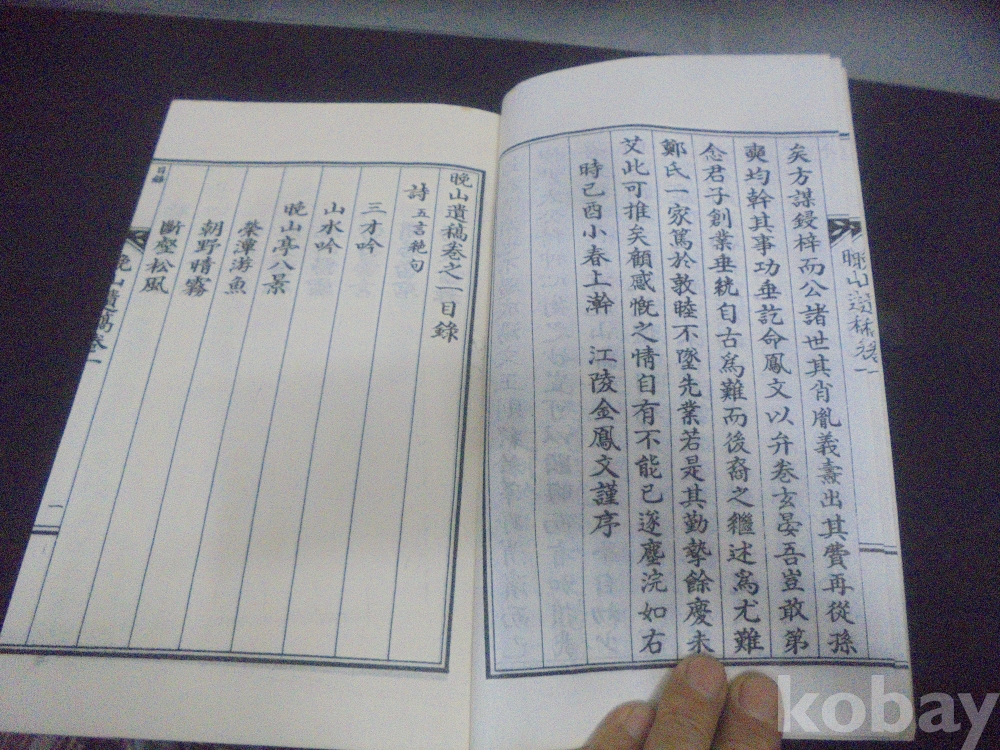 晩山遺稿卷一
矣方謀鋟梓而公諸世其肖胤義燾出其費再從孫
奭均幹其事功垂訖命鳳文以弁卷玄晏吾豈敢第
念君子創業垂統自古爲難而後裔之繼述爲尤難
鄭氏一家篤於敦睦不墜先業若是其勤摯餘慶未
艾此可推矣顧感慨之情自有不能已遂塵浣如右
時己酉小春上澣 江陵金鳳文謹序
晩山遺稿卷之一目錄
詩 五言絶句
三才吟
山水吟
晩山亭八景
榮潭游魚
朝野晴霧
斷壑松風
晩山遺稿卷一
目錄
一
kobay